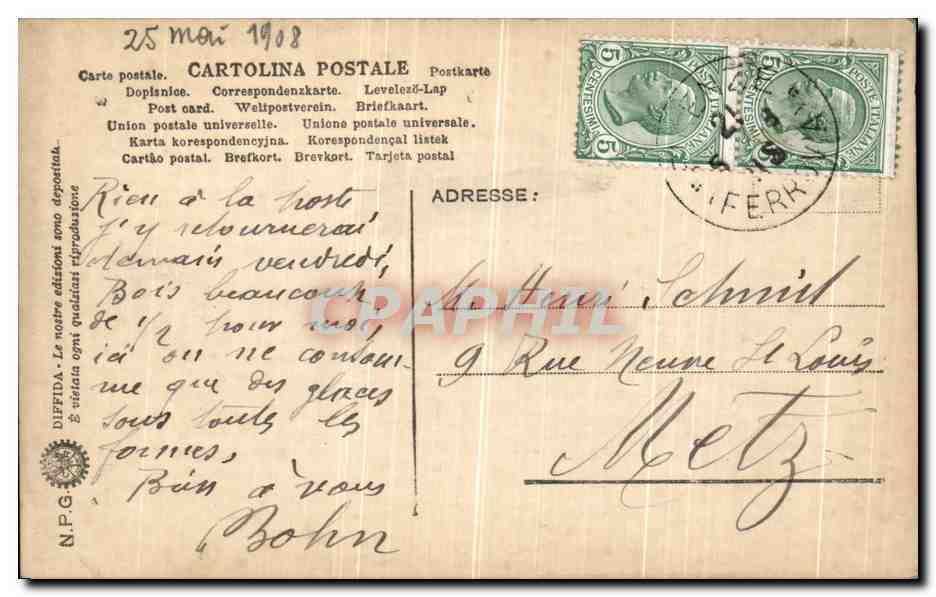 25 mai 1908
Carte postale. CARTOLINA POSTALE Postkarte
Dopisnice. Correspondenzkarte. Levelező-Lap
Post card. Weltpostverein. Briefkaart.
Union postale universelle. Unione postale universale.
Karta korespondencyjna. Korespondenčal listek
Cartão postal. Brefkort. Brevkort. Tarjeta postal
5 CENTESIMI 5
POSTE ITALIANE
5 CENTESIMI 5
POSTE ITALIANE
(FERR
Rien à la poste
j'y retournerai
demain vendredi,
Bois beaucoup
de 1/2 pour moi,
ici on ne consom-
me que des glaces
sous toutes les
formes,
Bien à vous
Bohn
ADRESSE:
M. Henri Schmit
9 Rue Neuve St Louis
Metz
DIFFIDA - Le nostre edizioni sono depositate
È vietata ogni qualsiasi riproduzione
N.P.G.
CPAPHIL